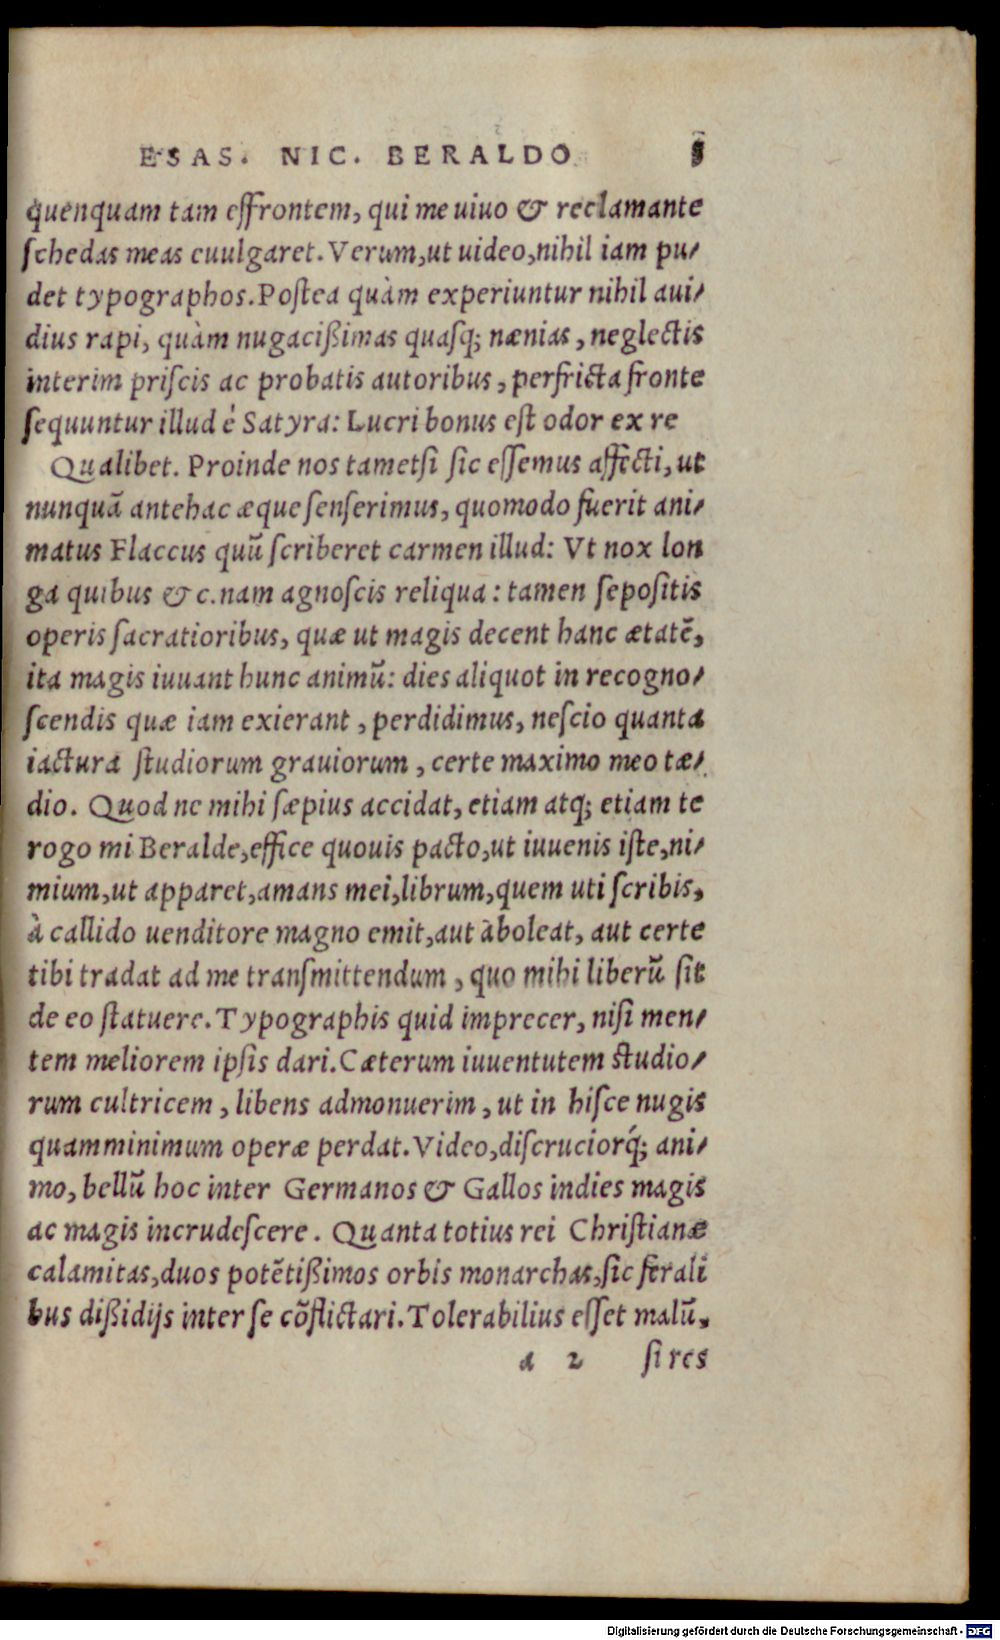 ERAS. NIC. BERALDO
quenquam tam effrontem, qui me uiuo & reclamante
ſchedas meas euulgaret. Verum, ut uideo, nihil iam pu/
det typographos. Poſtea quàm experiuntur nihil aui/
dius rapi, quàm nugacißimas quaſq; nænias, neglectis
interim priſcis ac probatis autoribus, perfricta fronte
ſequuntur illud è Satyra: Lucri bonus eſt odor ex re
Qualibet. Proinde nos tametſi ſic eſſemus affecti, ut
nunquã antehac æque ſenſerimus, quomodo fuerit ani/
matus Flaccus quũ ſcriberet carmen illud: Vt nox lon
ga quibus & c. nam agnoſcis reliqua: tamen ſepoſitis
operis ſacratioribus, quæ ut magis decent hanc ætatẽ,
ita magis iuuant hunc animũ: dies aliquot in recogno/
ſcendis quæ iam exierant, perdidimus, neſcio quanta
iactura ſtudiorum grauiorum, certe maximo meo tæ/
dio. Quod ne mihi ſæpius accidat, etiam atq; etiam te
rogo mi Beralde, effice quouis pacto, ut iuuenis iſte, ni/
mium, ut apparet, amans mei, librum, quem uti ſcribis,
à callido uenditore magno emit, aut aboleat, aut certe
tibi tradat ad me tranſmittendum, quo mihi liberũ ſit
de eo ſtatuere. Typographis quid imprecer, niſi men/
tem meliorem ipſis dari. Cæterum iuuentutem ſtudio/
rum cultricem, libens admonuerim, ut in hiſce nugis
quamminimum operæ perdat. Video, diſcruciorq́; ani/
mo, bellũ hoc inter Germanos & Gallos indies magis
ac magis incrudeſcere. Quanta totius rei Chriſtianæ
calamitas, duos potẽtißimos orbis monarchas, ſic ferali
bus dißidijs inter ſe cõflictari. Tolerabilius eſſet malũ,
a 2 ſi res
Digitalisierung gefördert durch die Deutsche Forschungsgemeinschaft - DFG